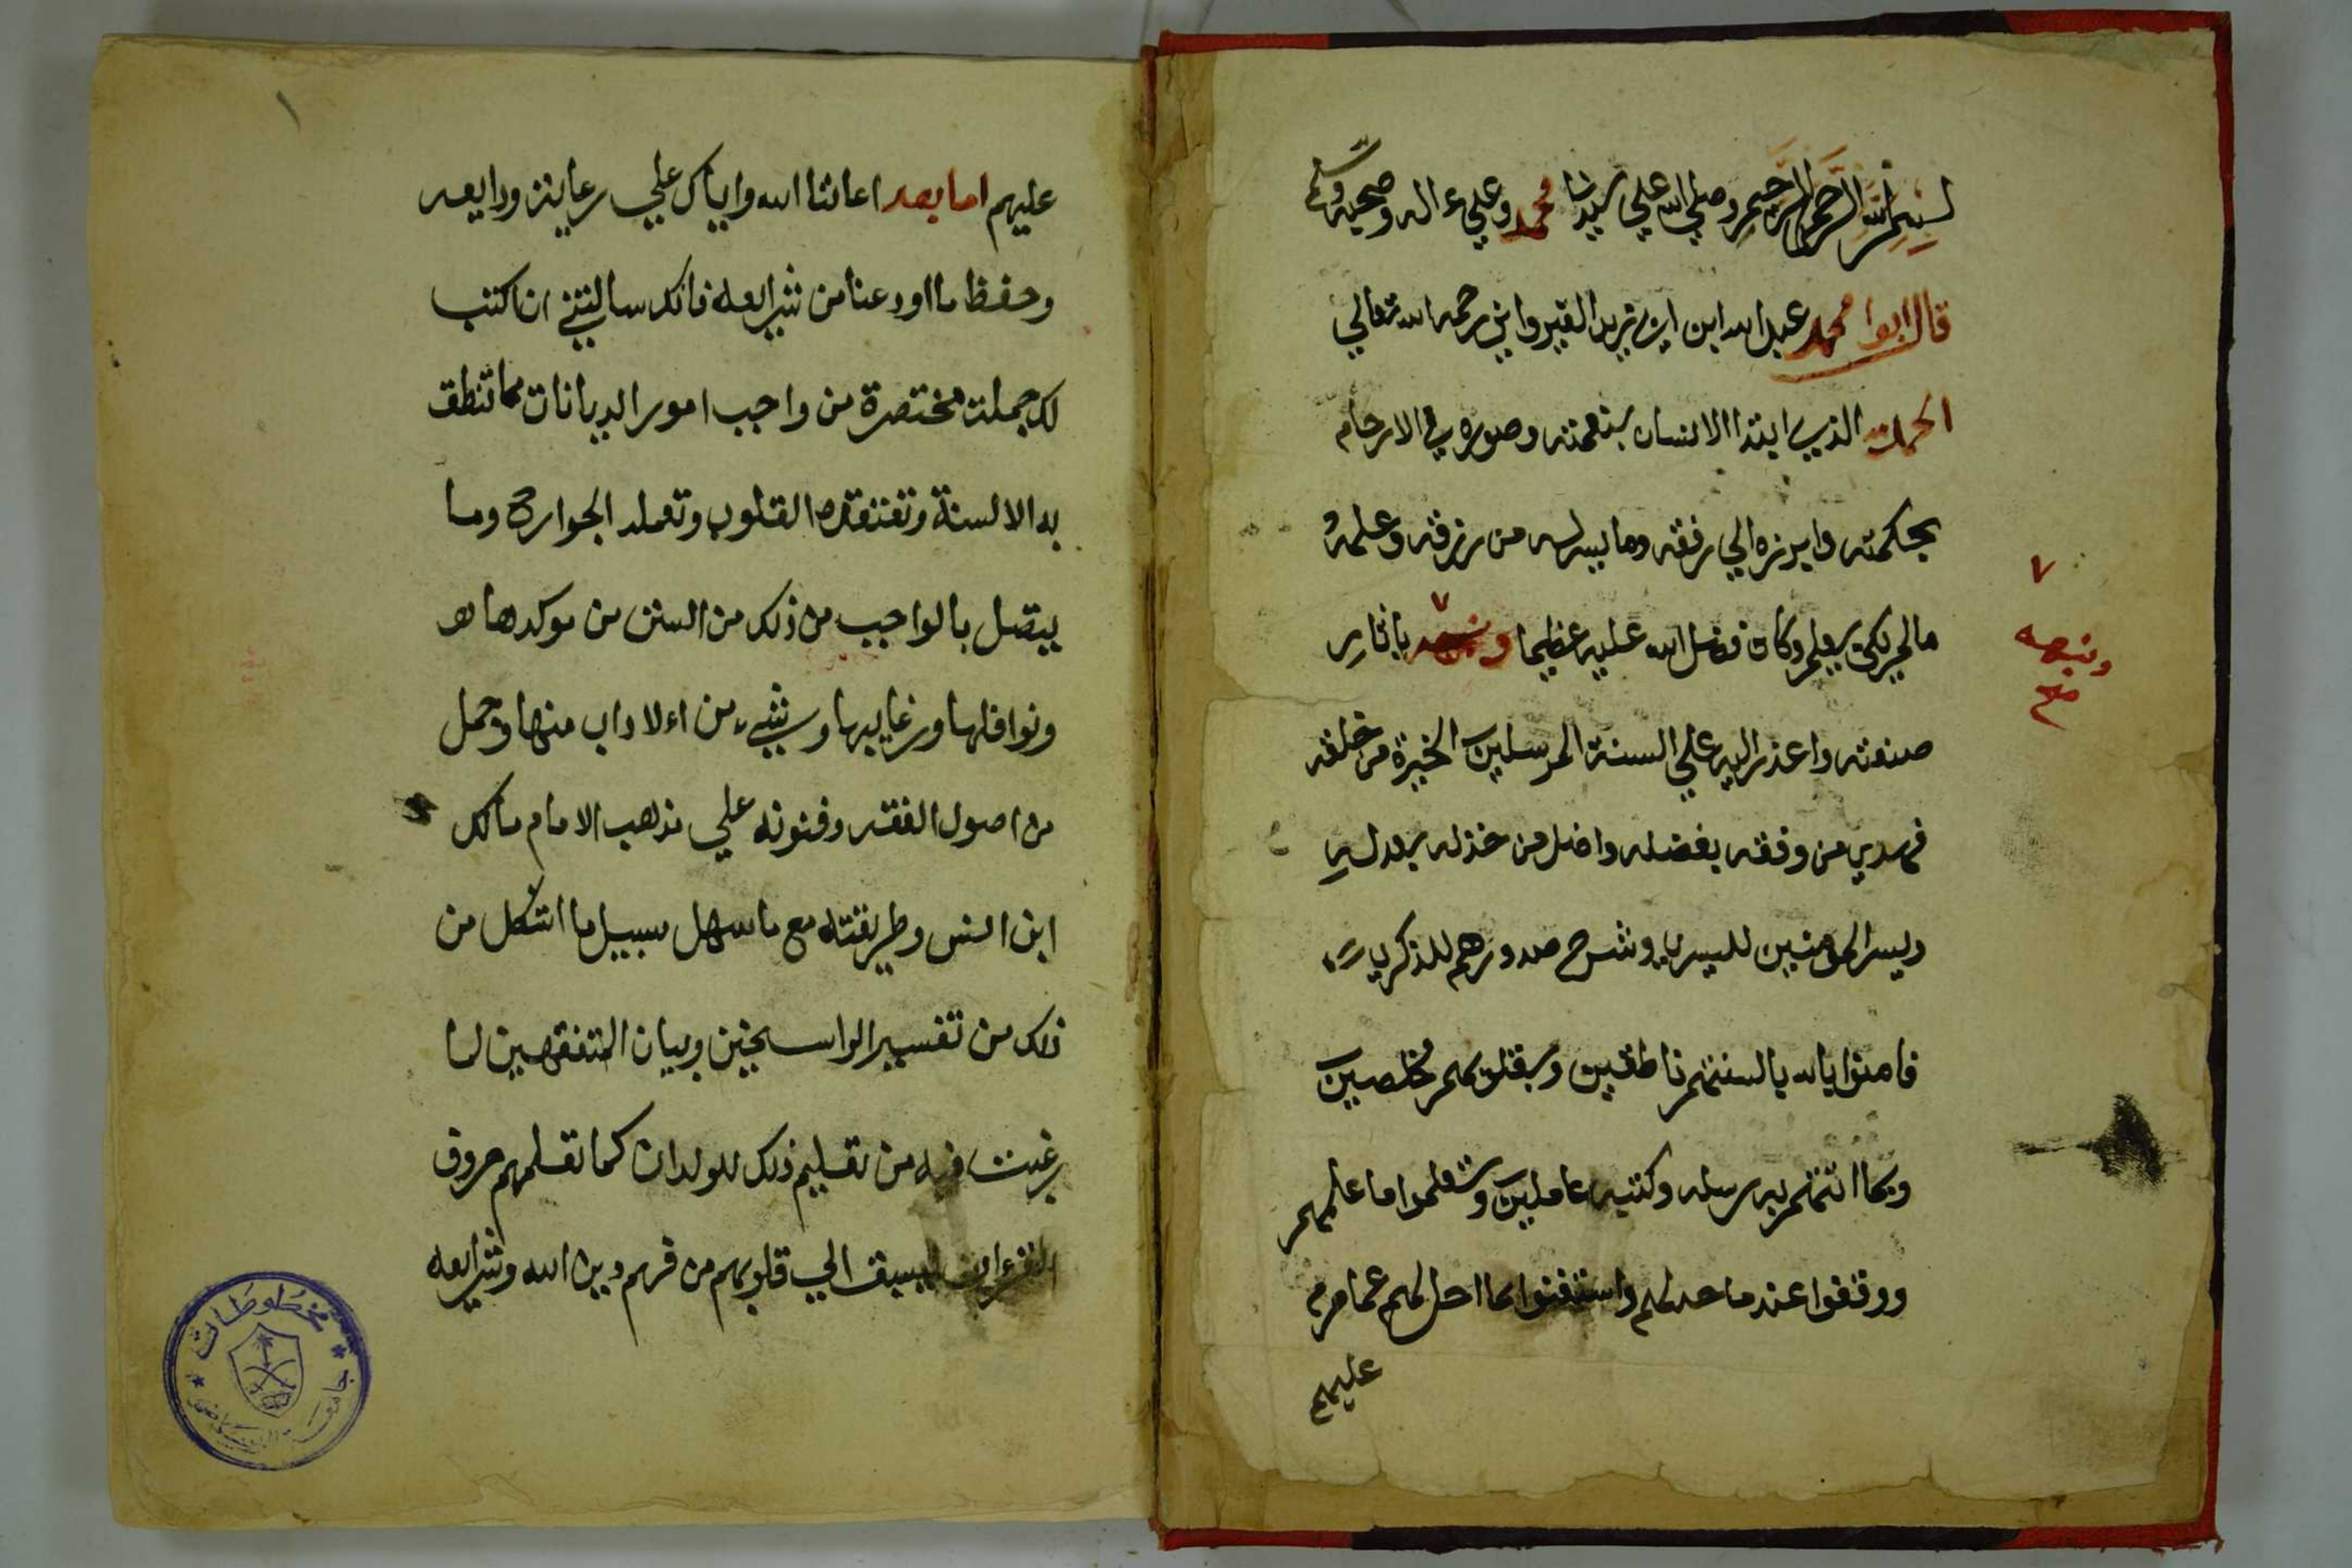 بسم الله الرحمن الرحيم وصلي الله علي سيدنا محمد وعلي ءاله وصحبه وسلم
قال ابوا محمد عبد الله ابن ابي زيد القيرواني رحمه الله تعالي
الحمد لله الذي ابتدا الانسان بنعمته وصوره في الارحام
بحكمته وابرزه الي رفقه وما يسر له من رزقه وعلمه
مالم يكن يعلم وكان فضل الله عليه عظيما ونبهه باثار
ونبهه
صح
صنعته واعذر اليه علي السنة المرسلين الخيرة من خلقه
فهدي من وفقه بفضله واضل من خذله بعدله
ويسر المومنين لليسري وشرح صدورهم للذكري
فامنوا بالله بالسنتهم ناطقين وبقلوبهم مخلصين
وبما اتتهم به رسله وكتبه عاملين وتعلموا ما علمهم
ووقفوا عند ما حد لهم واستغنوا بما احل لهم عما حرم
عليهم
١
عليهم اما بعد اعاننا الله واياك علي رعاية ودايعه
وحفظ ما اودعنا من شرايعه فانك سالتني ان اكتب
لك جملة مختصرة من واجب امور الديانات مما تنطق
به الالسنة وتعتقده القلوب وتعمله الجوارح وما
يتصل بالواجب من ذلك من السنن من موكدها
ونوافلها ورغايبها وشيء من الاداب منها وجمل
من اصول الفقه وفنونه علي مذهب الامام مالك
ابن انس وطريقته مع ما سهل سبيل ما اشكل من
ذلك من تفسير الراسخين وبيان المتفقهين لما
رغبت فيه من تعليم ذلك للولدان كما تعلمهم حروف
القرءان ليسبق الي قلوبهم من فهم دين الله وشرايعه
مخطوطات
جامعة الرياض